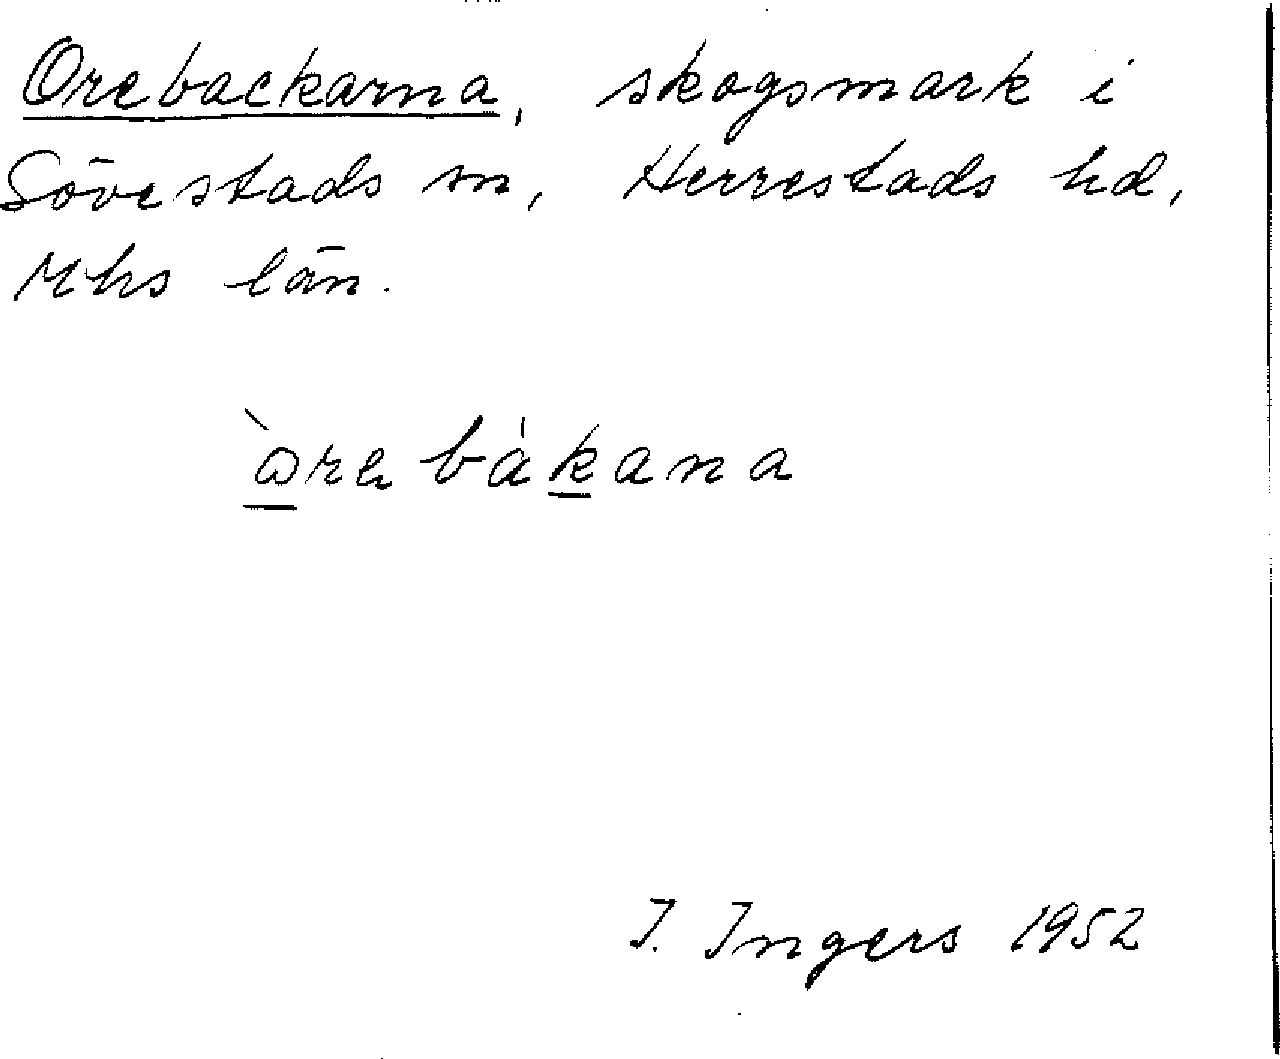 Orebackarna, skogsmark i
Sövestads sn, Herrestads hd,
Mhs län.
òre bákana
I. Ingers 1952